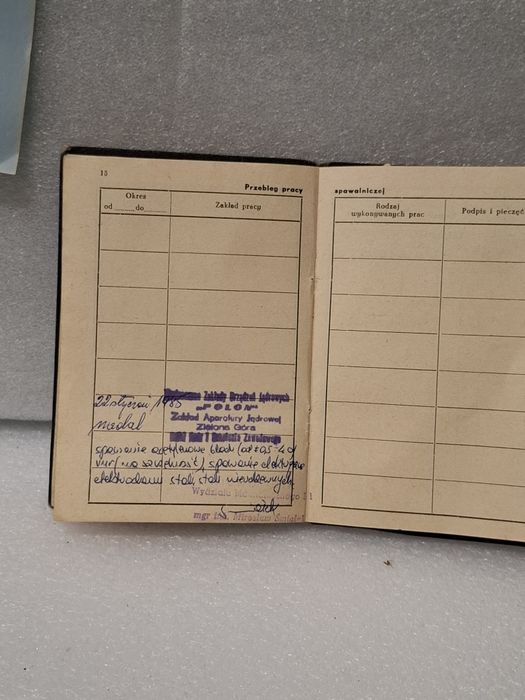 15
Przebieg pracy
spawalniczej
Okres
od do
Zakład pracy
Rodzaj
wykonywanych prac
Podpis i pieczęć
22 styczeń 1985
Zjednoczone Zakłady Urządzeń Jądrowych
"POLON"
Zakład Aparatury Jądrowej
Zielona Góra
medal
spawanie acetylenowe blach
rur na szczelność, spawanie elektryczne
elektrodami stali, stali nierdzewnych
Wydziału
mgr inż. Mirosław